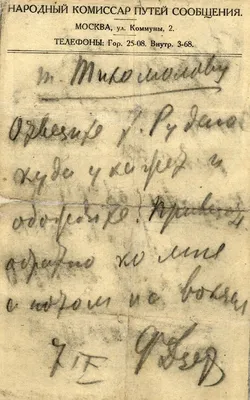 НАРОДНЫЙ КОМИССАР ПУТЕЙ СООБЩЕНИЯ.
МОСКВА, ул. Коммуны, 2.
ТЕЛЕФОНЫ: Гор. 25-08. Внутр. 3-68.
т. Тихомолову
Отвезите т. Рудена
куда укажет и
обождите.
обратно ко мне
а потом на вокзал
7 IX ФДзер